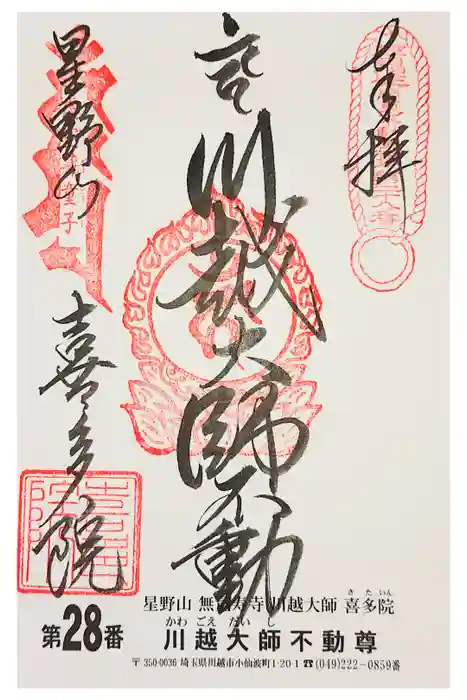 奉拝
川越大師不動
星野山
喜多院
星野山 無量寿寺 川越大師 喜多院
きたいん
第28番
川越大師不動尊
かわ ごえ だい し
〒350-0036 埼玉県川越市小仙波町1-20-1 ☎(049)222-0859番